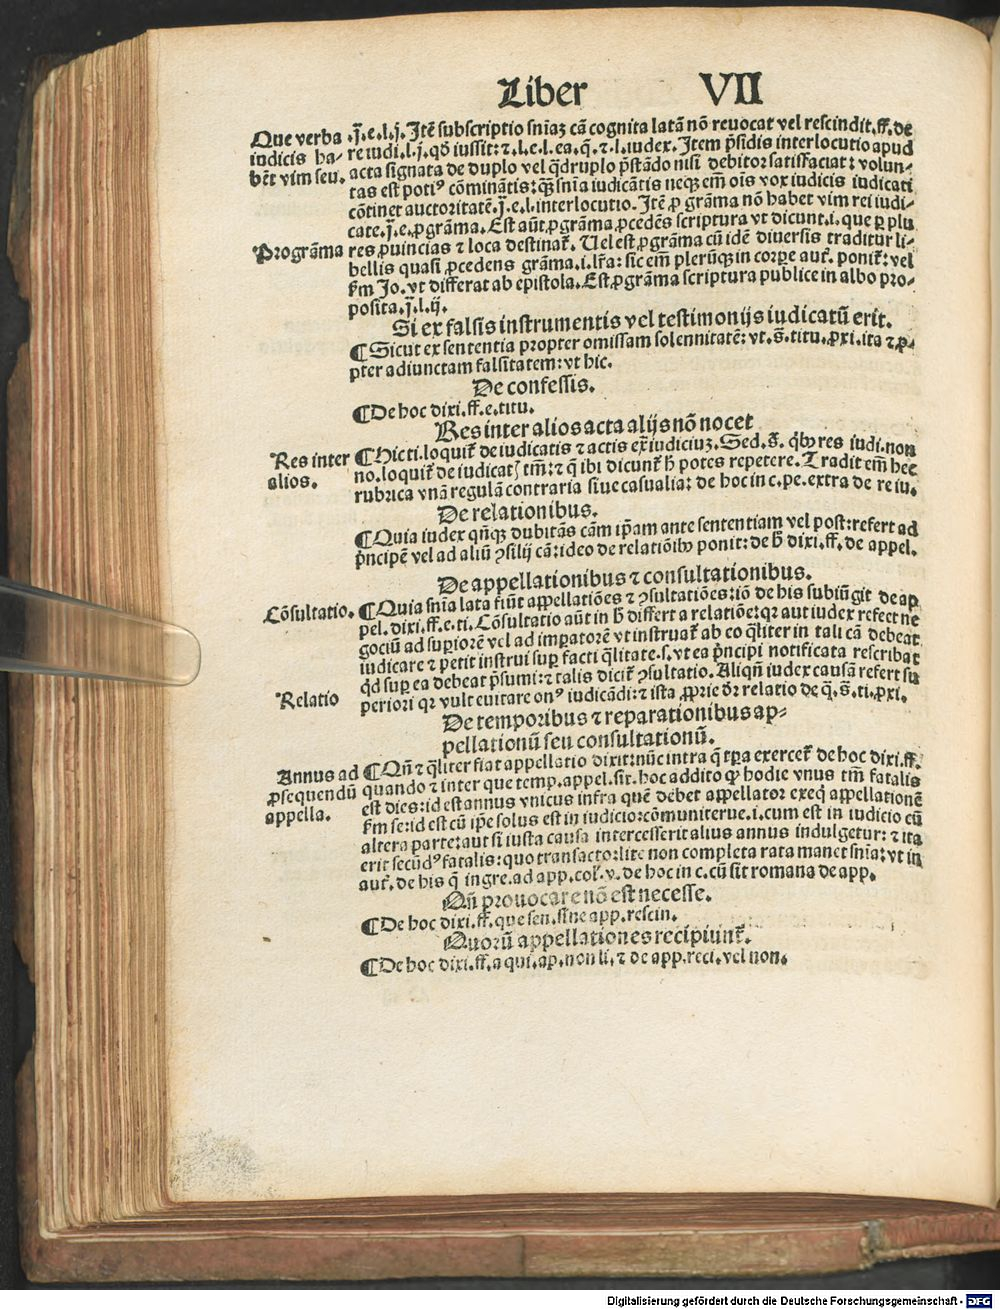 Liber VII
Que verba
iudicis ha-
bēt vim seu.
.j̄.e.l.j. Itē subscriptio sniāꝫ cā cognita latā nō reuocat vel rescindit.ff.de
re iudi.l.j. qd̄ iussit: ⁊.l.c.l.ea.q̄.⁊.l.iudex. Item p̄sidis interlocutio apud
acta signata de duplo vel q̄druplo p̄stādo nisi debitor satisfaciat: volun-
tas est potiꝰ cōminātis: qꝫ snīa iudicātis neqꝫ em̄ oīs vox iudicis iudicati
cōtinet auctoritatē.j̄.e.l.interlocutio. Itē ꝓ grāma nō habet vim rei iudi-
cate.j̄.e.ꝓgrāma. Est aūt ꝓgrāma ꝓcedēs scriptura vt dicunt.i. que ꝑ plu
Programā
res ꝓuincias ⁊ loca destinat᷑. Uel est ꝓgrāma cū idē diuersis traditur li-
bellis quasi ꝓcedens grāma.i.lr̄a: sic em̄ plerūqꝫ in corꝑe aut᷑. ponit᷑: vel
km̄ Jo. vt differat ab epistola. Est ꝓgrāma scriptura publice in albo pro-
posita.j̄.l.ij.
Si ex falsis instrumentis vel testimonijs iudicatū erit.
¶ Sicut ex sententia propter omissam solennitatē: vt.s̄.titu.ꝓxi. ita ⁊ ꝓ-
pter adiunctam falsitatem: vt hic.
De confessis.
¶ De hoc dixi.ff.e.titu.
Res inter alios acta alijs nō nocet
Res inter
alios.
¶ Hic ti. loquit᷑ de iudicatis ⁊ actis ex̄ iudiciuꝫ. Sed.s̄. qbꝰ res iudi.non
no. loquit᷑ de iudicatꝭ tm̄: ⁊ q̄ ibi dicunt᷑ h̄ potes repetere. Tradit em̄ hec
rubrica vnā regulā contraria siue casualia: de hoc in c.pe.extra de re iu.
De relationibus.
¶ Quia iudex qn̄qꝫ dubitās cām ip̄am ante sententiam vel post: refert ad
p̄ncipē vel ad aliū ꝯsilij cā: ideo de relatiōibꝰ ponit: de h̄ dixi.ff.de appel.
De appellationibus ⁊ consultationibus.
Cōsultatio.
¶ Quia snīa lata fiūt appellatiōes ⁊ ꝯsultatiōes: iō de his subiūgit de ap
pel. dixi.ff.e.ti. Cōsultatio aūt in h̄ differt a relatiōe: qꝛ aut iudex refert ne
gociū ad superiorē vel ad imꝑatorē vt instruat᷑ ab eo q̄liter in tali cā debeat
iudicare ⁊ petit instrui suꝑ facti q̄litate.s. vt ea p̄ncipi notificata rescribat
qd̄ suꝑ ea debeat p̄sumi: ⁊ talis dicit᷑ ꝯsultatio. Aliqn̄ iudex causā refert su
Relatio
periori qꝛ vult euitare onꝰ iudicādi: ⁊ ista ꝓprie dr̄ relatio de q̄.s̄.ti.ꝓxi.
De temporibus ⁊ reparationibus ap-
pellationū seu consultationū.
Annus ad
ꝓsequendū
appella.
¶ Qn̄ ⁊ q̄liter fiat appellatio dixit: nūc intra q̄ tꝑa exercet᷑ de hoc dixi.ff.
quando ⁊ inter que temp.appel.sit. hoc addito ꝙ hodie vnus tm̄ fatalis
est dies: id est annus vnicus infra quē debet appellator exeq̄ appellationē
km̄ se: id est cū ip̄e solus est in iudicio: cōmuniterue.i.cum est in iudicio cū
altera parte: aut si iusta causa intercesserit alius annus indulgetur: ⁊ ita
erit secūdꝰ fatalis: quo transacto: lite non completa rata manet snīa: vt in
aut᷑. de his q̄ ingre.ad app.col᷑.v. de hoc in c.cū sit romana de app.
Qn̄ prouocare nō est necesse.
¶ De hoc dixi.ff.que sen.sine app.rescin.
Quorū appellationes recipiunt᷑.
¶ De hoc dixi.ff.a qui.ap.non li.⁊ de app.reci.vel non.
Digitalisierung gefördert durch die Deutsche Forschungsgemeinschaft - DFG